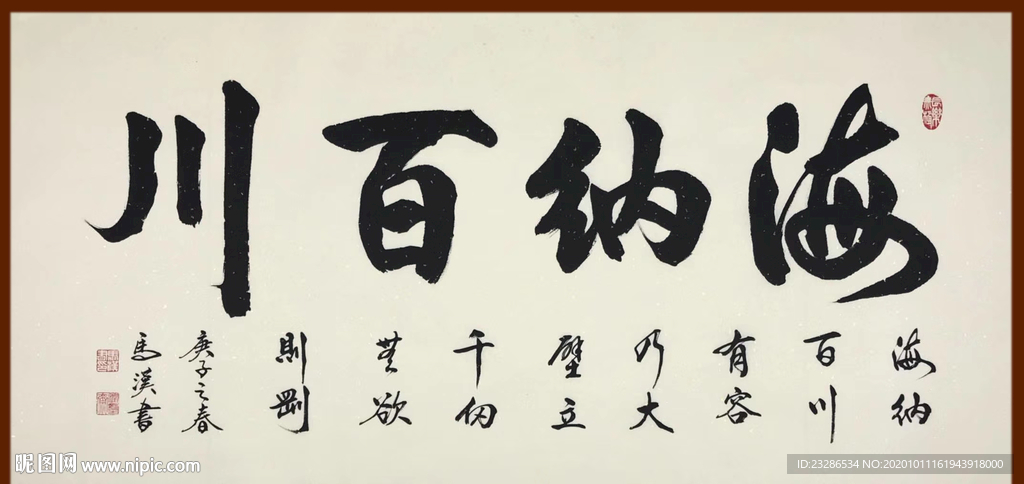 海纳百川
海纳
百川
有容
乃大
壁立
千仞
無欲
則剛
庚子之春
馬溪書
昵图网 www.nipic.com
ID:23286534 NO:20201011161943918000